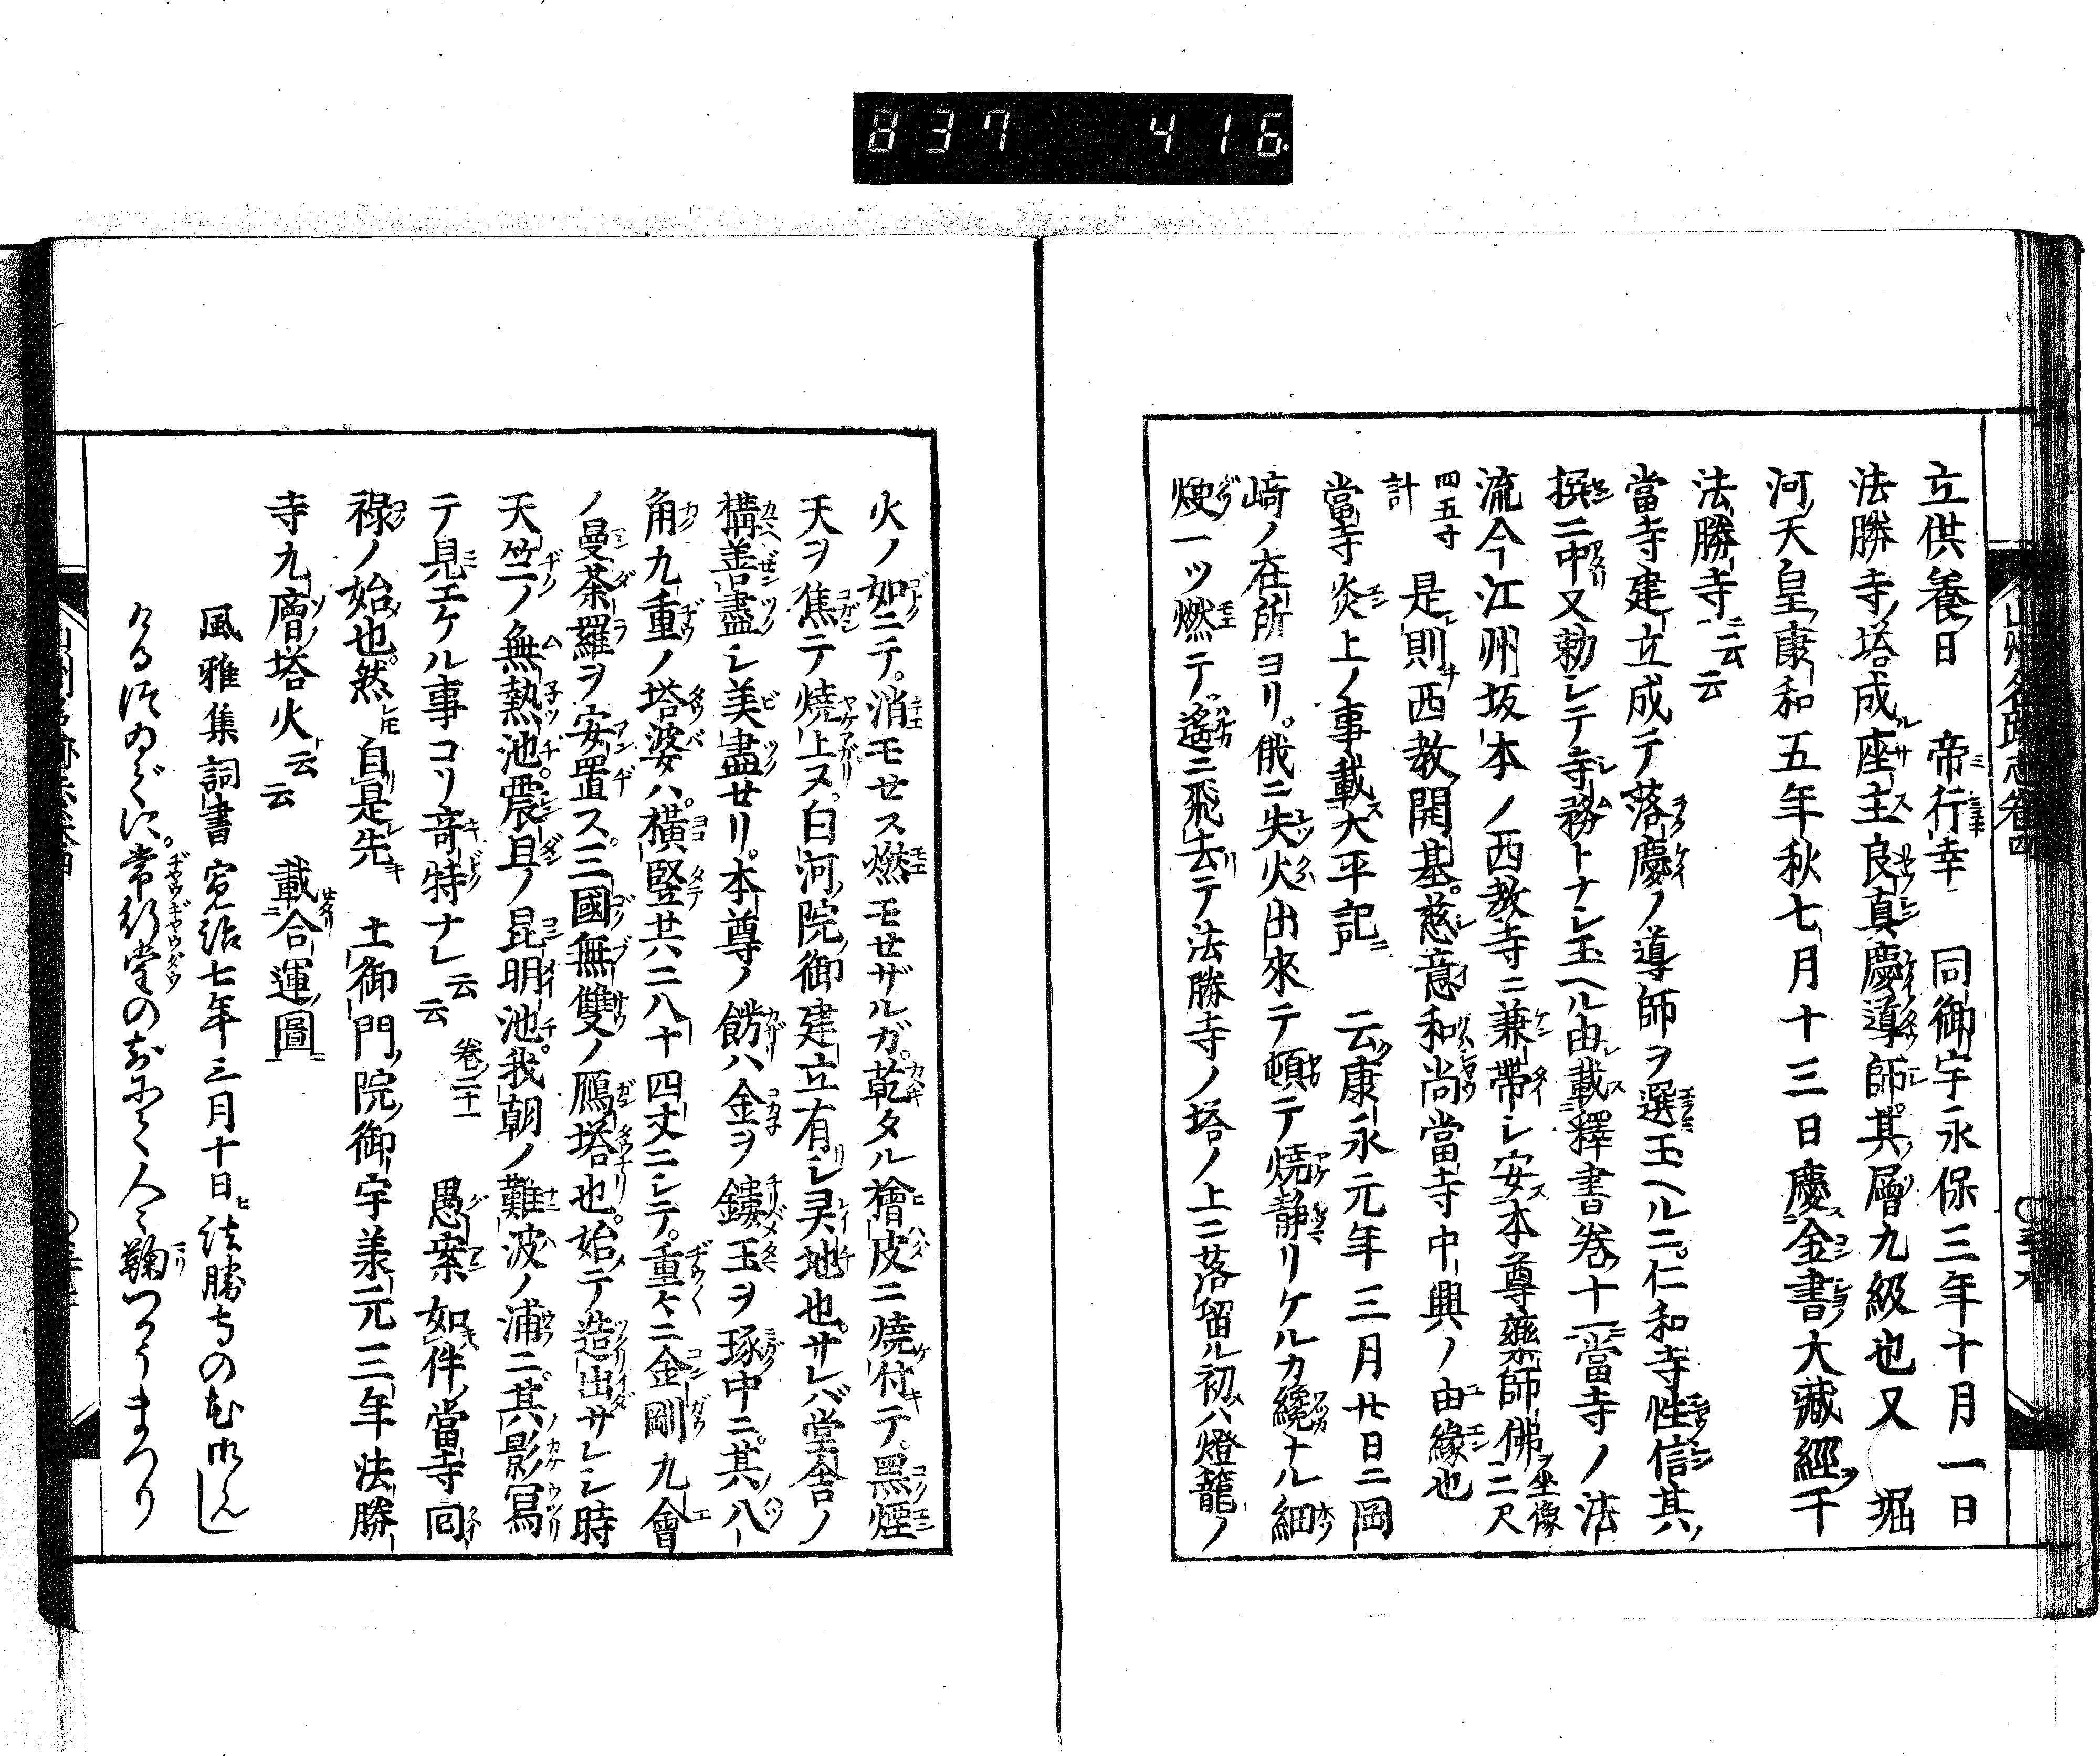 837 416
立供養日 帝行幸 同御宇永保三年十月一日
法勝寺塔成座主良真慶導師其層九級也又 堀
河天皇康和五年秋七月十三日慶金書大藏經千
法勝寺云云
當寺建立成テ落慶ノ導師ヲ選玉ヘルニ。仁和寺性信其
撰ニ中又勅レテ寺務トナシ玉ヘル由載釋書卷十一當寺ノ法
流今江州坂本ノ西教寺ニ兼帶シ安本尊藥師佛坐像二尺
四五寸計 是則西教開基。慈意和尚當寺中興ノ由緣也
當寺炎上ノ事載太平記 云康永元年三月廿日ニ岡
﨑ノ在所ヨリ。俄ニ失火出來テ頓テ燒靜リケルカ纔ナル細
煙一ツ燃テ。遙ニ飛去テ法勝寺ノ塔ノ上ニ落留ル初ハ燈籠ノ
火ノ如ニテ。消モセス燃モセザルガ。乾タル檜皮ニ燒付テ。黑煙
天ヲ焦テ燒上ヌ。白河院御建立有シ灵地也。サレバ堂舎ノ
構善盡シ美盡セリ。本尊ノ餝ハ金ヲ鏤玉ヲ琢中ニ。其八
角九重ノ塔婆ハ。橫竪共ニ八十四丈ニシテ。重々ニ金剛九會
ノ曼荼羅ヲ安置ス。三國無雙ノ鴈塔也。始テ造出サレシ時
天竺ノ無熱池。震旦ノ昆明池。我朝ノ難波ノ浦ニ。其影寫
テ見エケル事コソ竒特ナレ云云 卷二十一 愚案如件當寺回
禄ノ始也。然自是先 土御門院御宇羕元三年法勝
寺九層塔火云云 載合運圖
風雅集詞書寛治七年三月十日法勝寺の花御らん
ける次ゐでに。常行堂のまへにて人々鞠つかうまつり